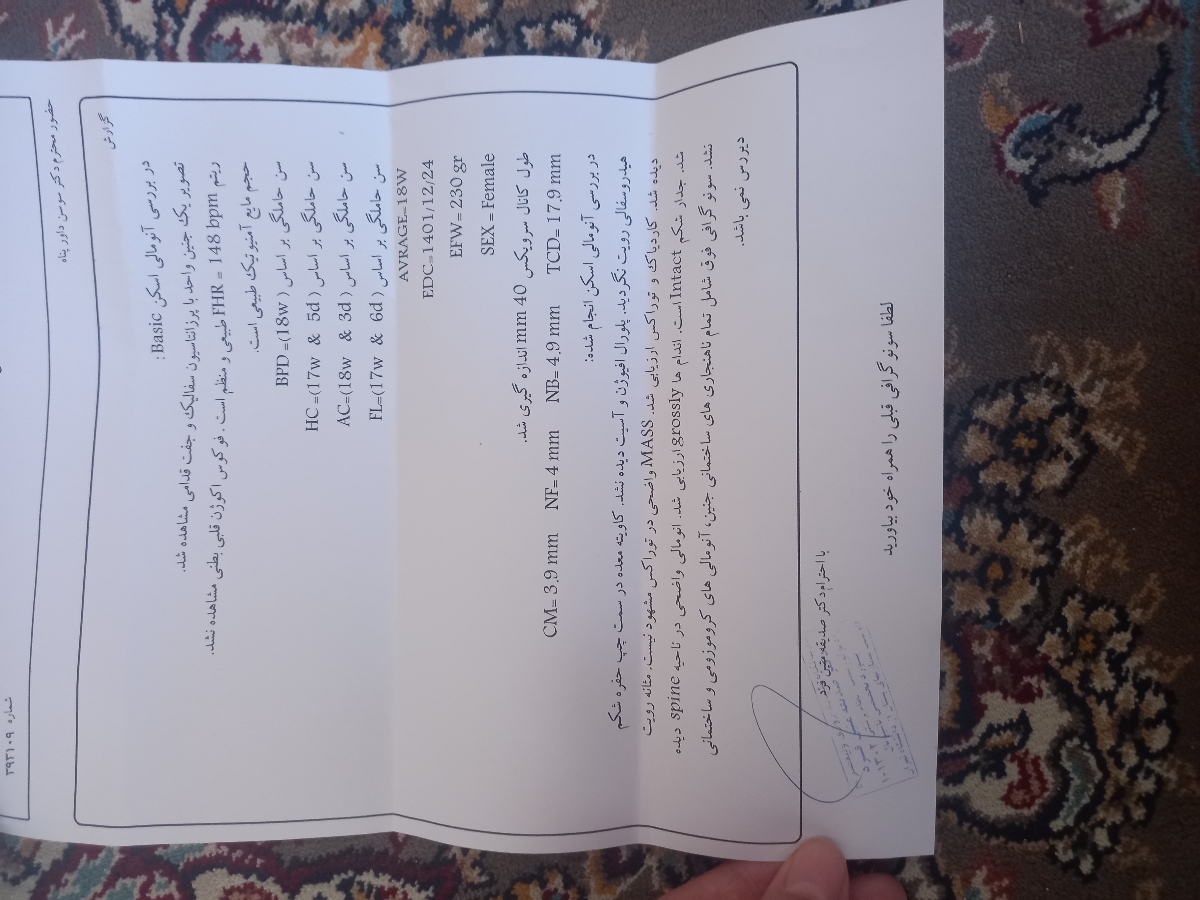 شماره ۳۹۲۱۰۹
حضور محترم دکتر سوسن داور پناه
گزارش
در بررسی آنومالی اسکن Basic:
تصویر یک جنین واحد با پرزانتاسیون سفالیک و جفت قدامی مشاهده شد.
ریتم FHR = 148 bpm طبیعی و منظم است . فوکوس اکوژن قلبی بطنی مشاهده نشد.
حجم مایع آمنیوتیک طبیعی است.
سن حاملگی بر اساس BPD =(18w )
سن حاملگی بر اساس HC =(17w & 5d )
سن حاملگی بر اساس AC=(18w & 3d )
سن حاملگی بر اساس FL=(17w & 6d )
AVRAGE=18W
EDC=1401/12/24
EFW= 230 gr
SEX = Female
طول کانال سرویکس 40 mm اندازه گیری شد.
CM= 3.9 mm NF= 4 mm NB= 4.9 mm TCD= 17.9 mm
در بررسی آنومالی اسکن انجام شده:
هیدروسفالی رویت نگردید. پلورال افیوژن و آسیت دیده نشد. کاویته معده در سمت چپ حفره شکم
دیده شد. کاردیاک و توراکس ارزیابی شد. MASS واضحی در توراکس مشهود نیست. مثانه رویت
شد. جدار شکم Intact است. اندام ها grossly ارزیابی شد. انومالی واضحی در ناحیه spine دیده
نشد. سونو گرافی فوق شامل تمام ناهنجاری های ساختمانی جنین، آنومالی های کروموزومی و ساختمانی
دیررس نمی باشد.
با احترام دکتر صدیقه متین فرد
لطفا سونو گرافی قبلی را همراه خود بیاورید